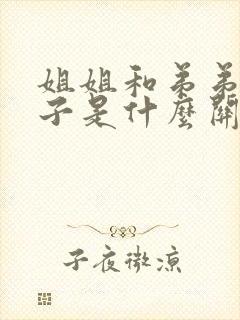 姐姐和弟弟
子是什麼關
子夜微涼